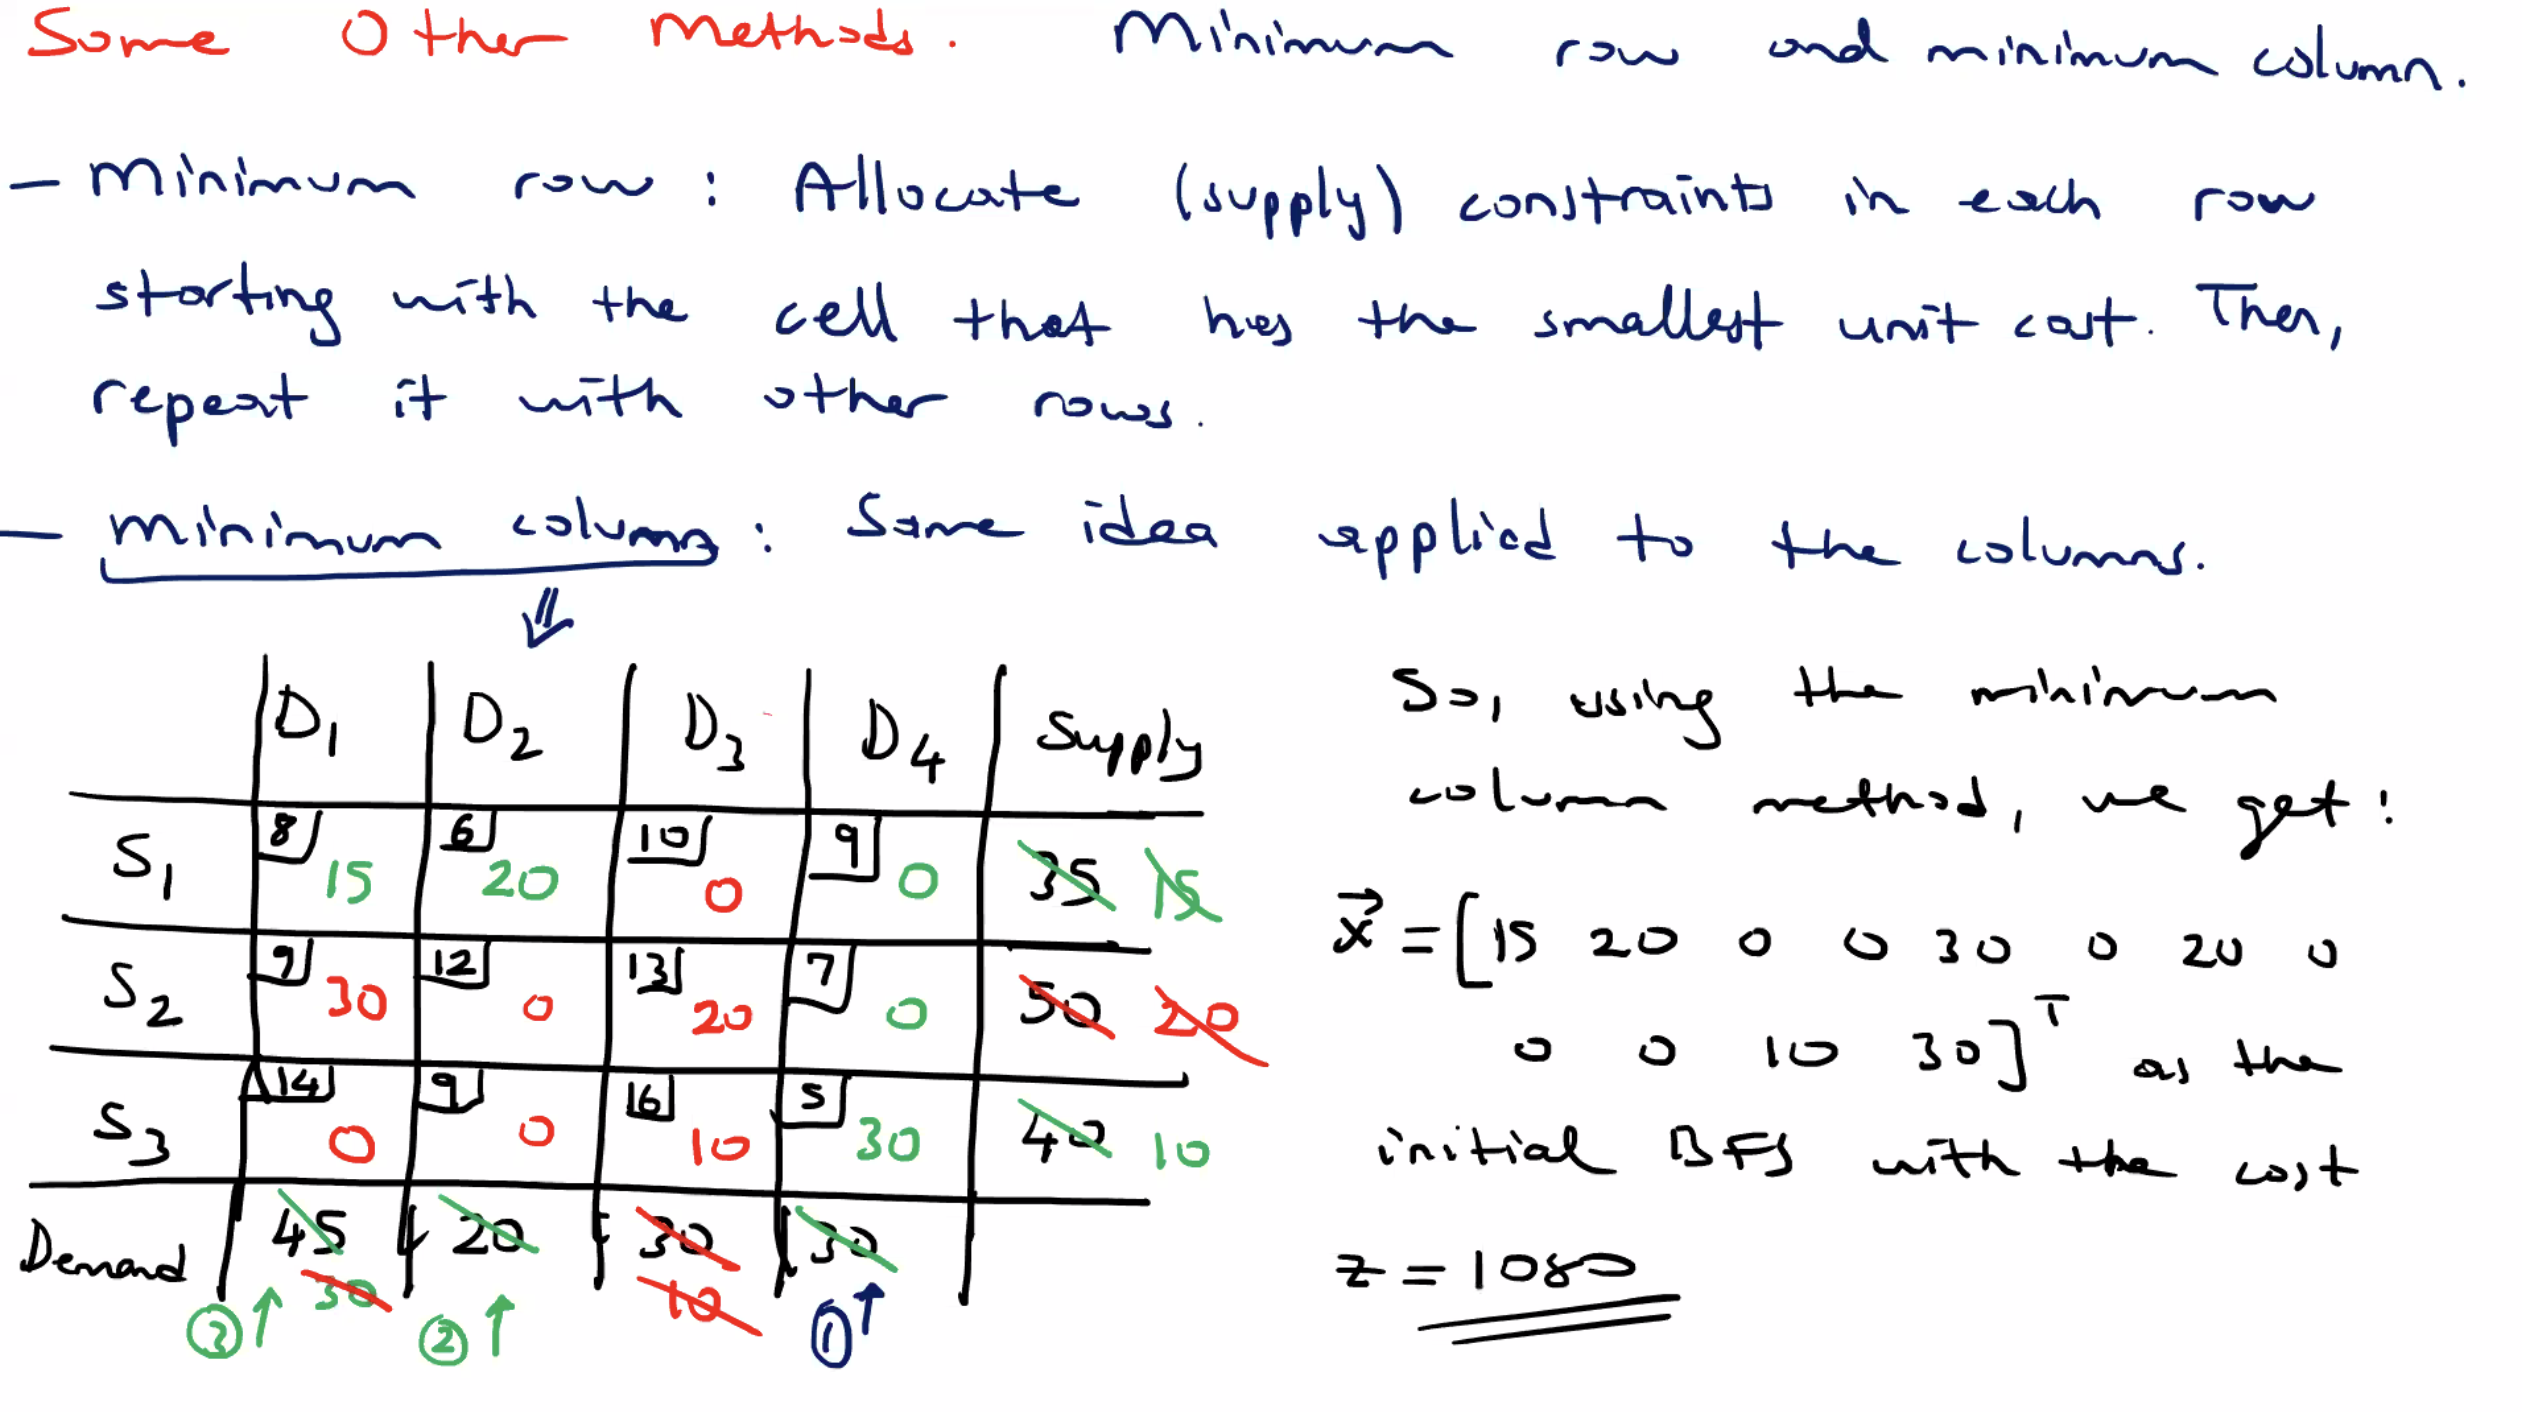 Some Other Methods. Minimum row and minimum column.
- Minimum row : Allocate (supply) constraints in each row
starting with the cell that has the smallest unit cost. Then,
repeat it with other rows.
- Minimum columns : Same idea applied to the columns.
D1 D2 D3 D4 Supply
S1 8 15 6 20 10 0 9 0 35 15
S2 9 30 12 0 13 20 7 0 50 20
S3 14 0 9 0 16 10 5 30 40 10
Demand 45 20 30 30
30 10
3 2 1
So, using the minimum
column method, we get:
x = [15 20 0 0 30 0 20 0
0 0 10 30]T as the
initial BFS with the cost
z = 1080